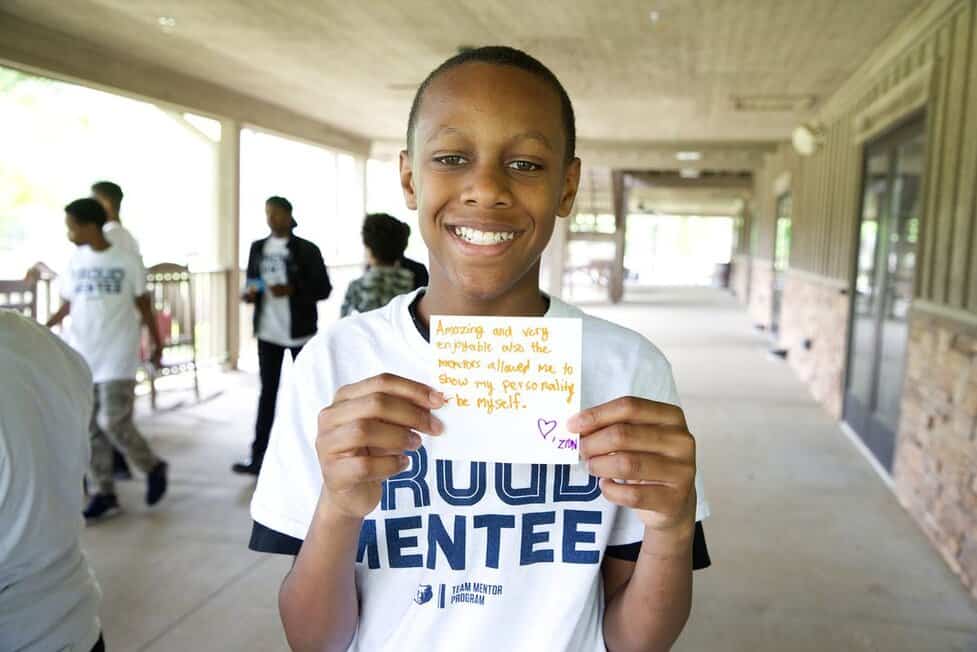 Amazing and very
enjoyable also the
mentors allowed me to
show my personality
be myself.
♡, ZION
ROUD
MENTEE
TEAM MENTOR
PROGRAM
ROUD
MENTEE